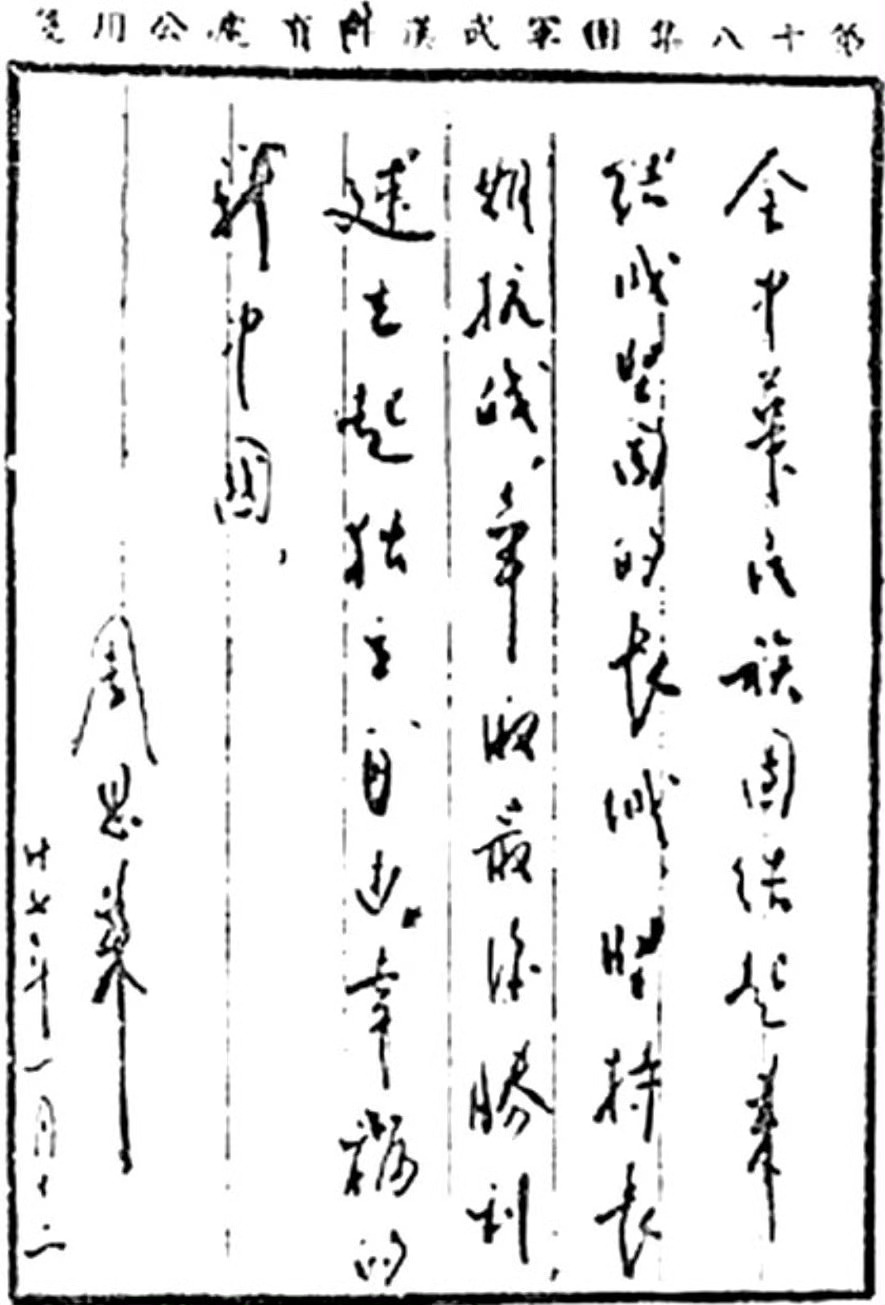 第十八集團軍武漢辦事處公用箋
全中華民族團結起來
結成堅固的長城,堅持長
期抗战,爭取最後勝利,
建立起独立自由幸福的
新中國。
周恩來
廿七年一月十二